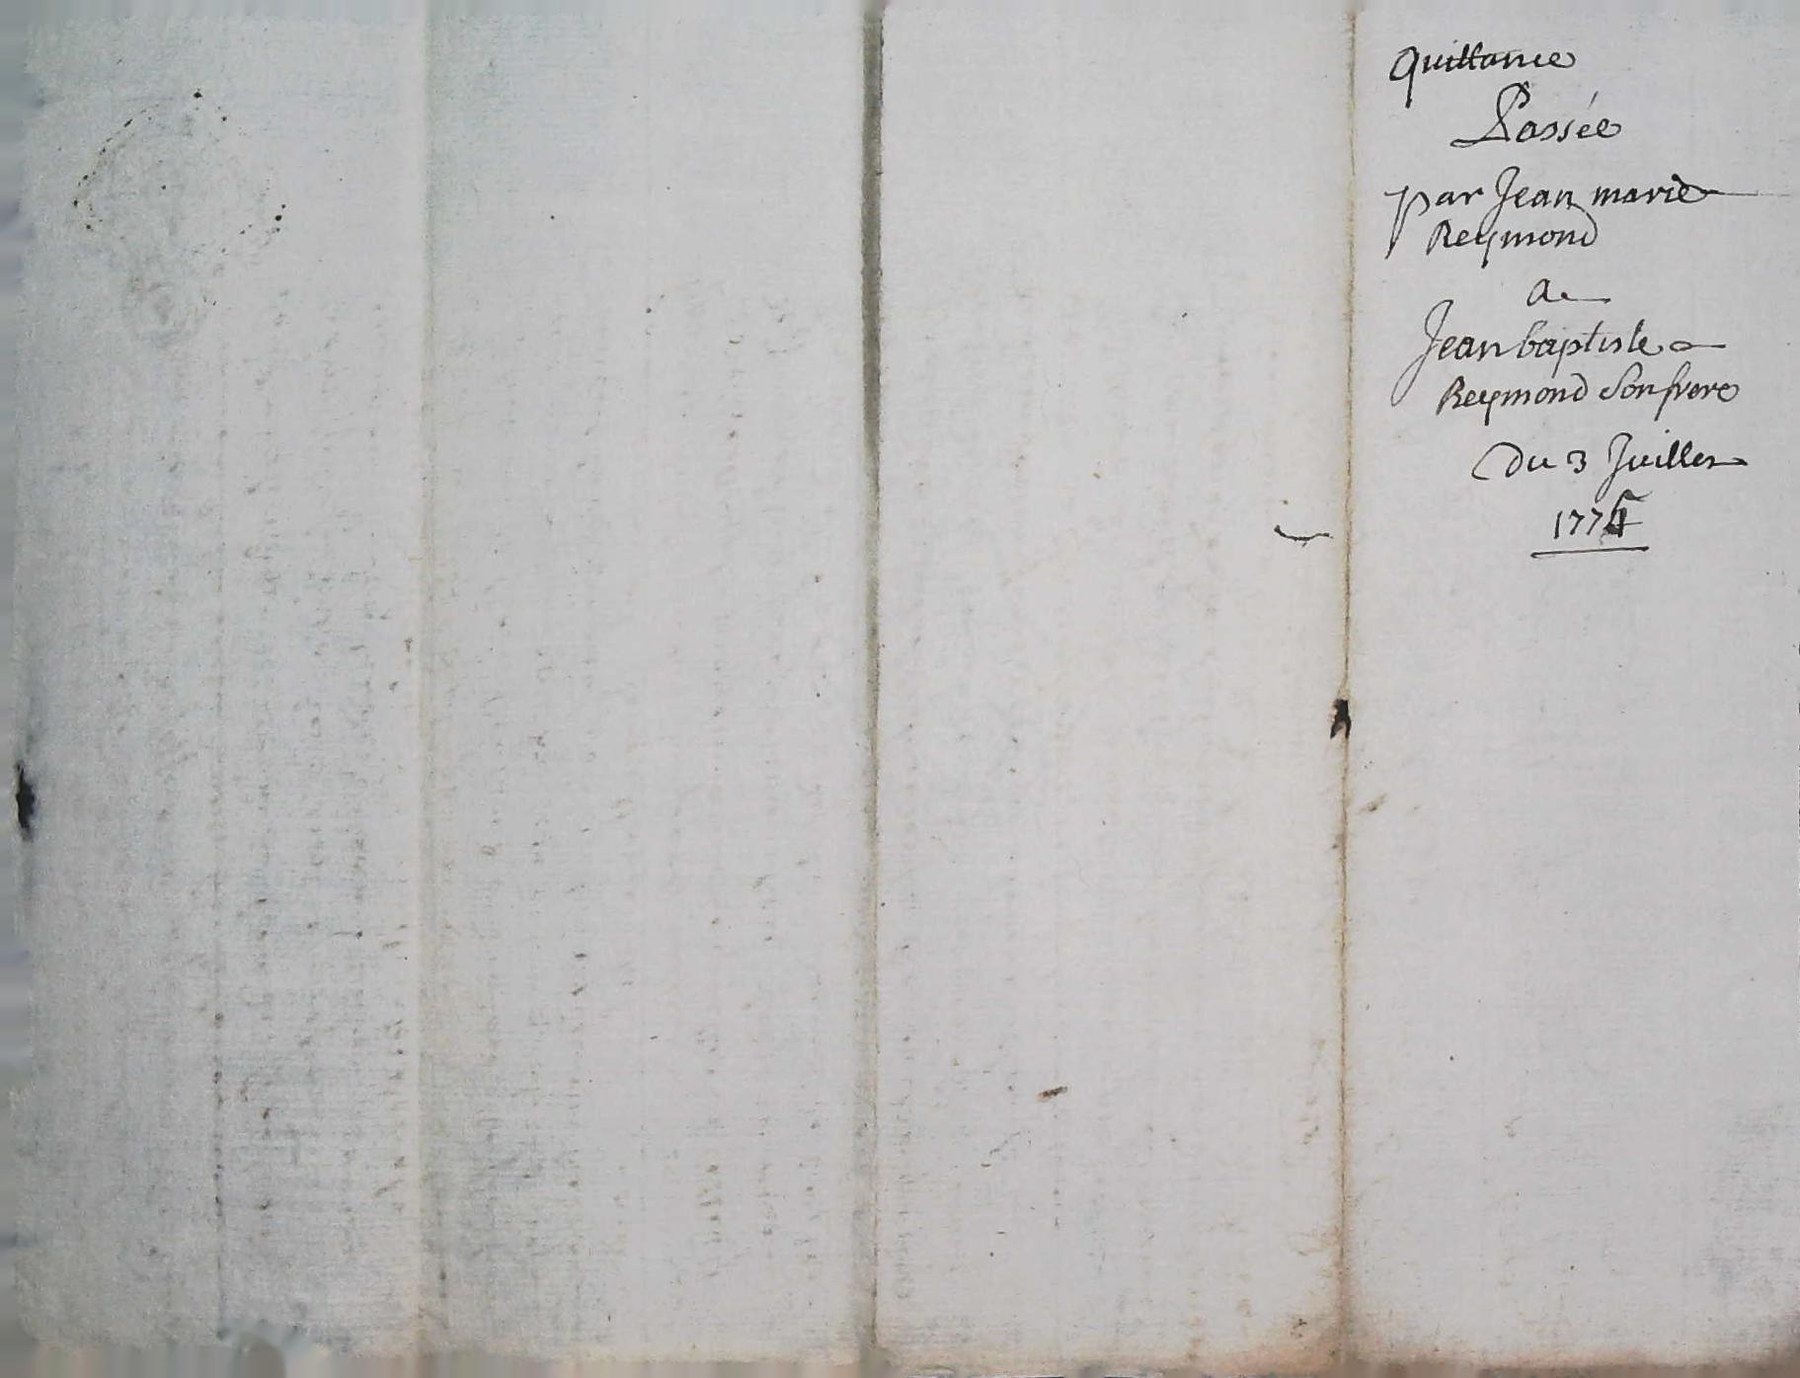 quittance
Passée
par Jean marie
Reymond
a
Jean baptiste
Reymond Son frere
Du 3 Juillet